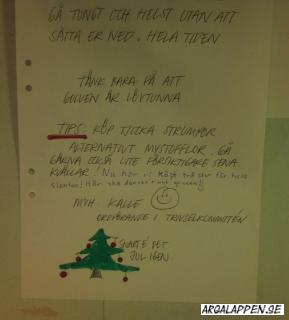 GÅ TUNGT OCH HELST UTAN ATT
SÄTTA ER NED. HELA TIDEN
TÄNK BARA PÅ ATT
GOLVEN ÄR LÖVTUNNA.
TIPS: KÖP TJOCKA STRUMPOR
ALTERNATIVT MYSTOFFLOR. GÅ
GÄRNA OCKSÅ LITE FÖRSIKTIGARE SENA
KVÄLLAR. Nu har vi köpt trä skor för hela
slanten! Här ska dansas runt granen!!
MVH KALLE
ORDFÖRANDE I TRIVSELKOMMITTÉN
SNART É DET
JUL IGEN
ARGALAPPEN.SE